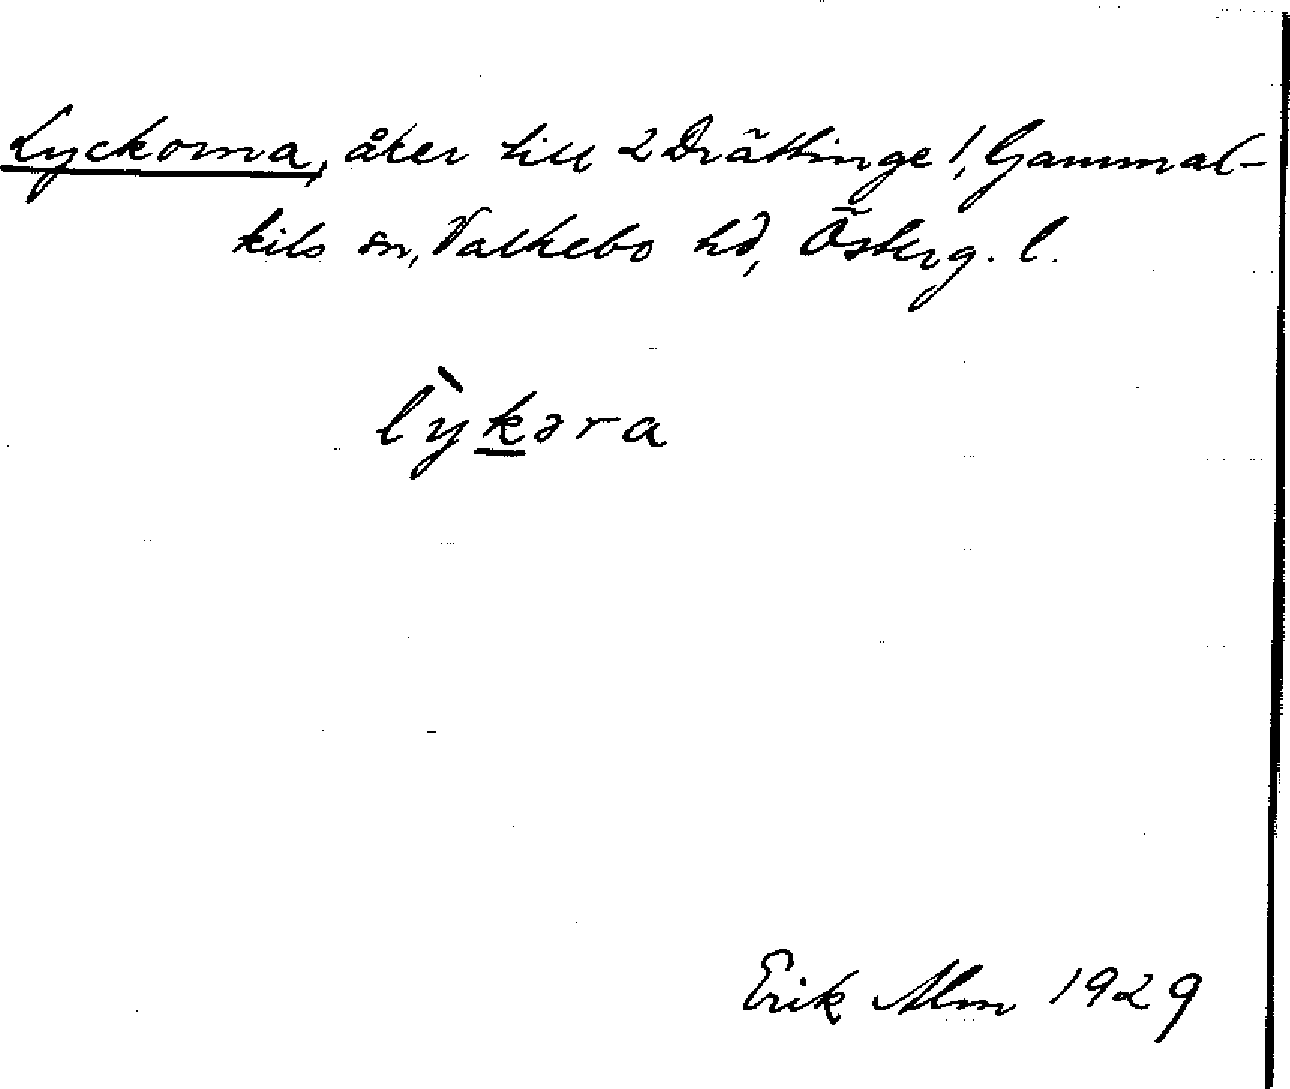 Lyckorna, åker till 2 Drättinge !, Gammal-
kils sn, Valkebo hd, Österg. l.
lỳkəra
Erik Alm 1929